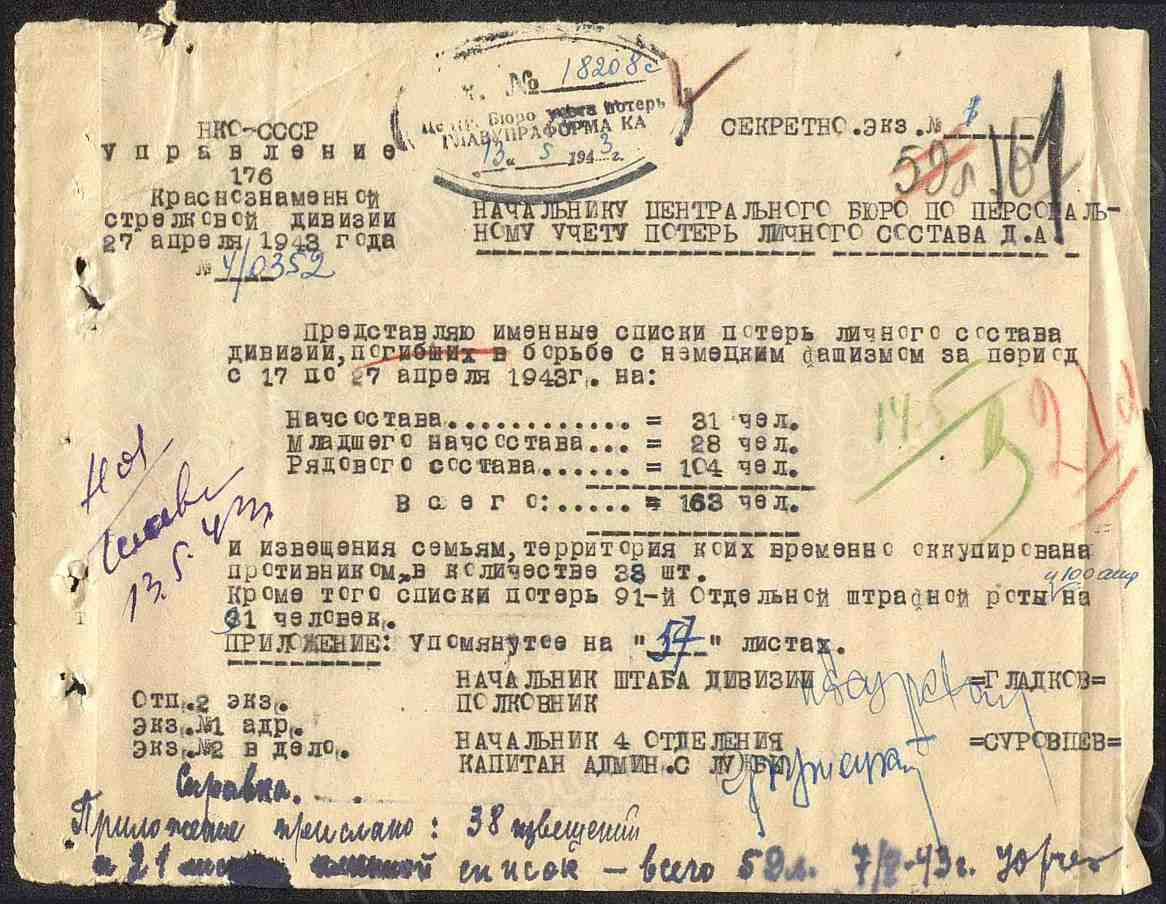 № 18208с
Центр. Бюро учета потерь
ГЛАВУПРАФОРМА КА
13 " 5 1943 г.
НКО-СССР
Управление
176
Краснознаменной
стрелковой дивизии
27 апреля 1943 года
№ 4/0352
СЕКРЕТНО.экз.№ 1
НАЧАЛЬНИКУ ЦЕНТРАЛЬНОГО БЮРО ПО ПЕРСОНАЛЬ-
НОМУ УЧЕТУ ПОТЕРЬ ЛИЧНОГО СОСТАВА Д.А.
Представляю именные списки потерь личного состава
дивизии,погибших в борьбе с немецким фашизмом за период
с 17 по 27 апреля 1943г. на:
Начсостава............. = 31 чел.
Младшего начсостава... = 28 чел.
Рядового состава...... = 104 чел.
Всего:...... = 163 чел.
и извещения семьям,территория коих временно оккупирована
противником,в количестве 38 шт.
Кроме того списки потерь 91-й Отдельной штрафной роты на
31 человек.
ПРИЛОЖЕНИЕ: Упомянутое на "57" листах.
НАЧАЛЬНИК ШТАБА ДИВИЗИИ
ПОЛКОВНИК =ГЛАДКОВ=
Отп.2 экз.
Экз.№1 адр.
Экз.№2 в дело.
НАЧАЛЬНИК 4 ОТДЕЛЕНИЯ
КАПИТАН АДМИН.СЛУЖБЫ =СУРОВЦЕВ=
13.5.43
Справка.
Приложение прислано: 38 извещений
и 21 именной список – всего 59л.